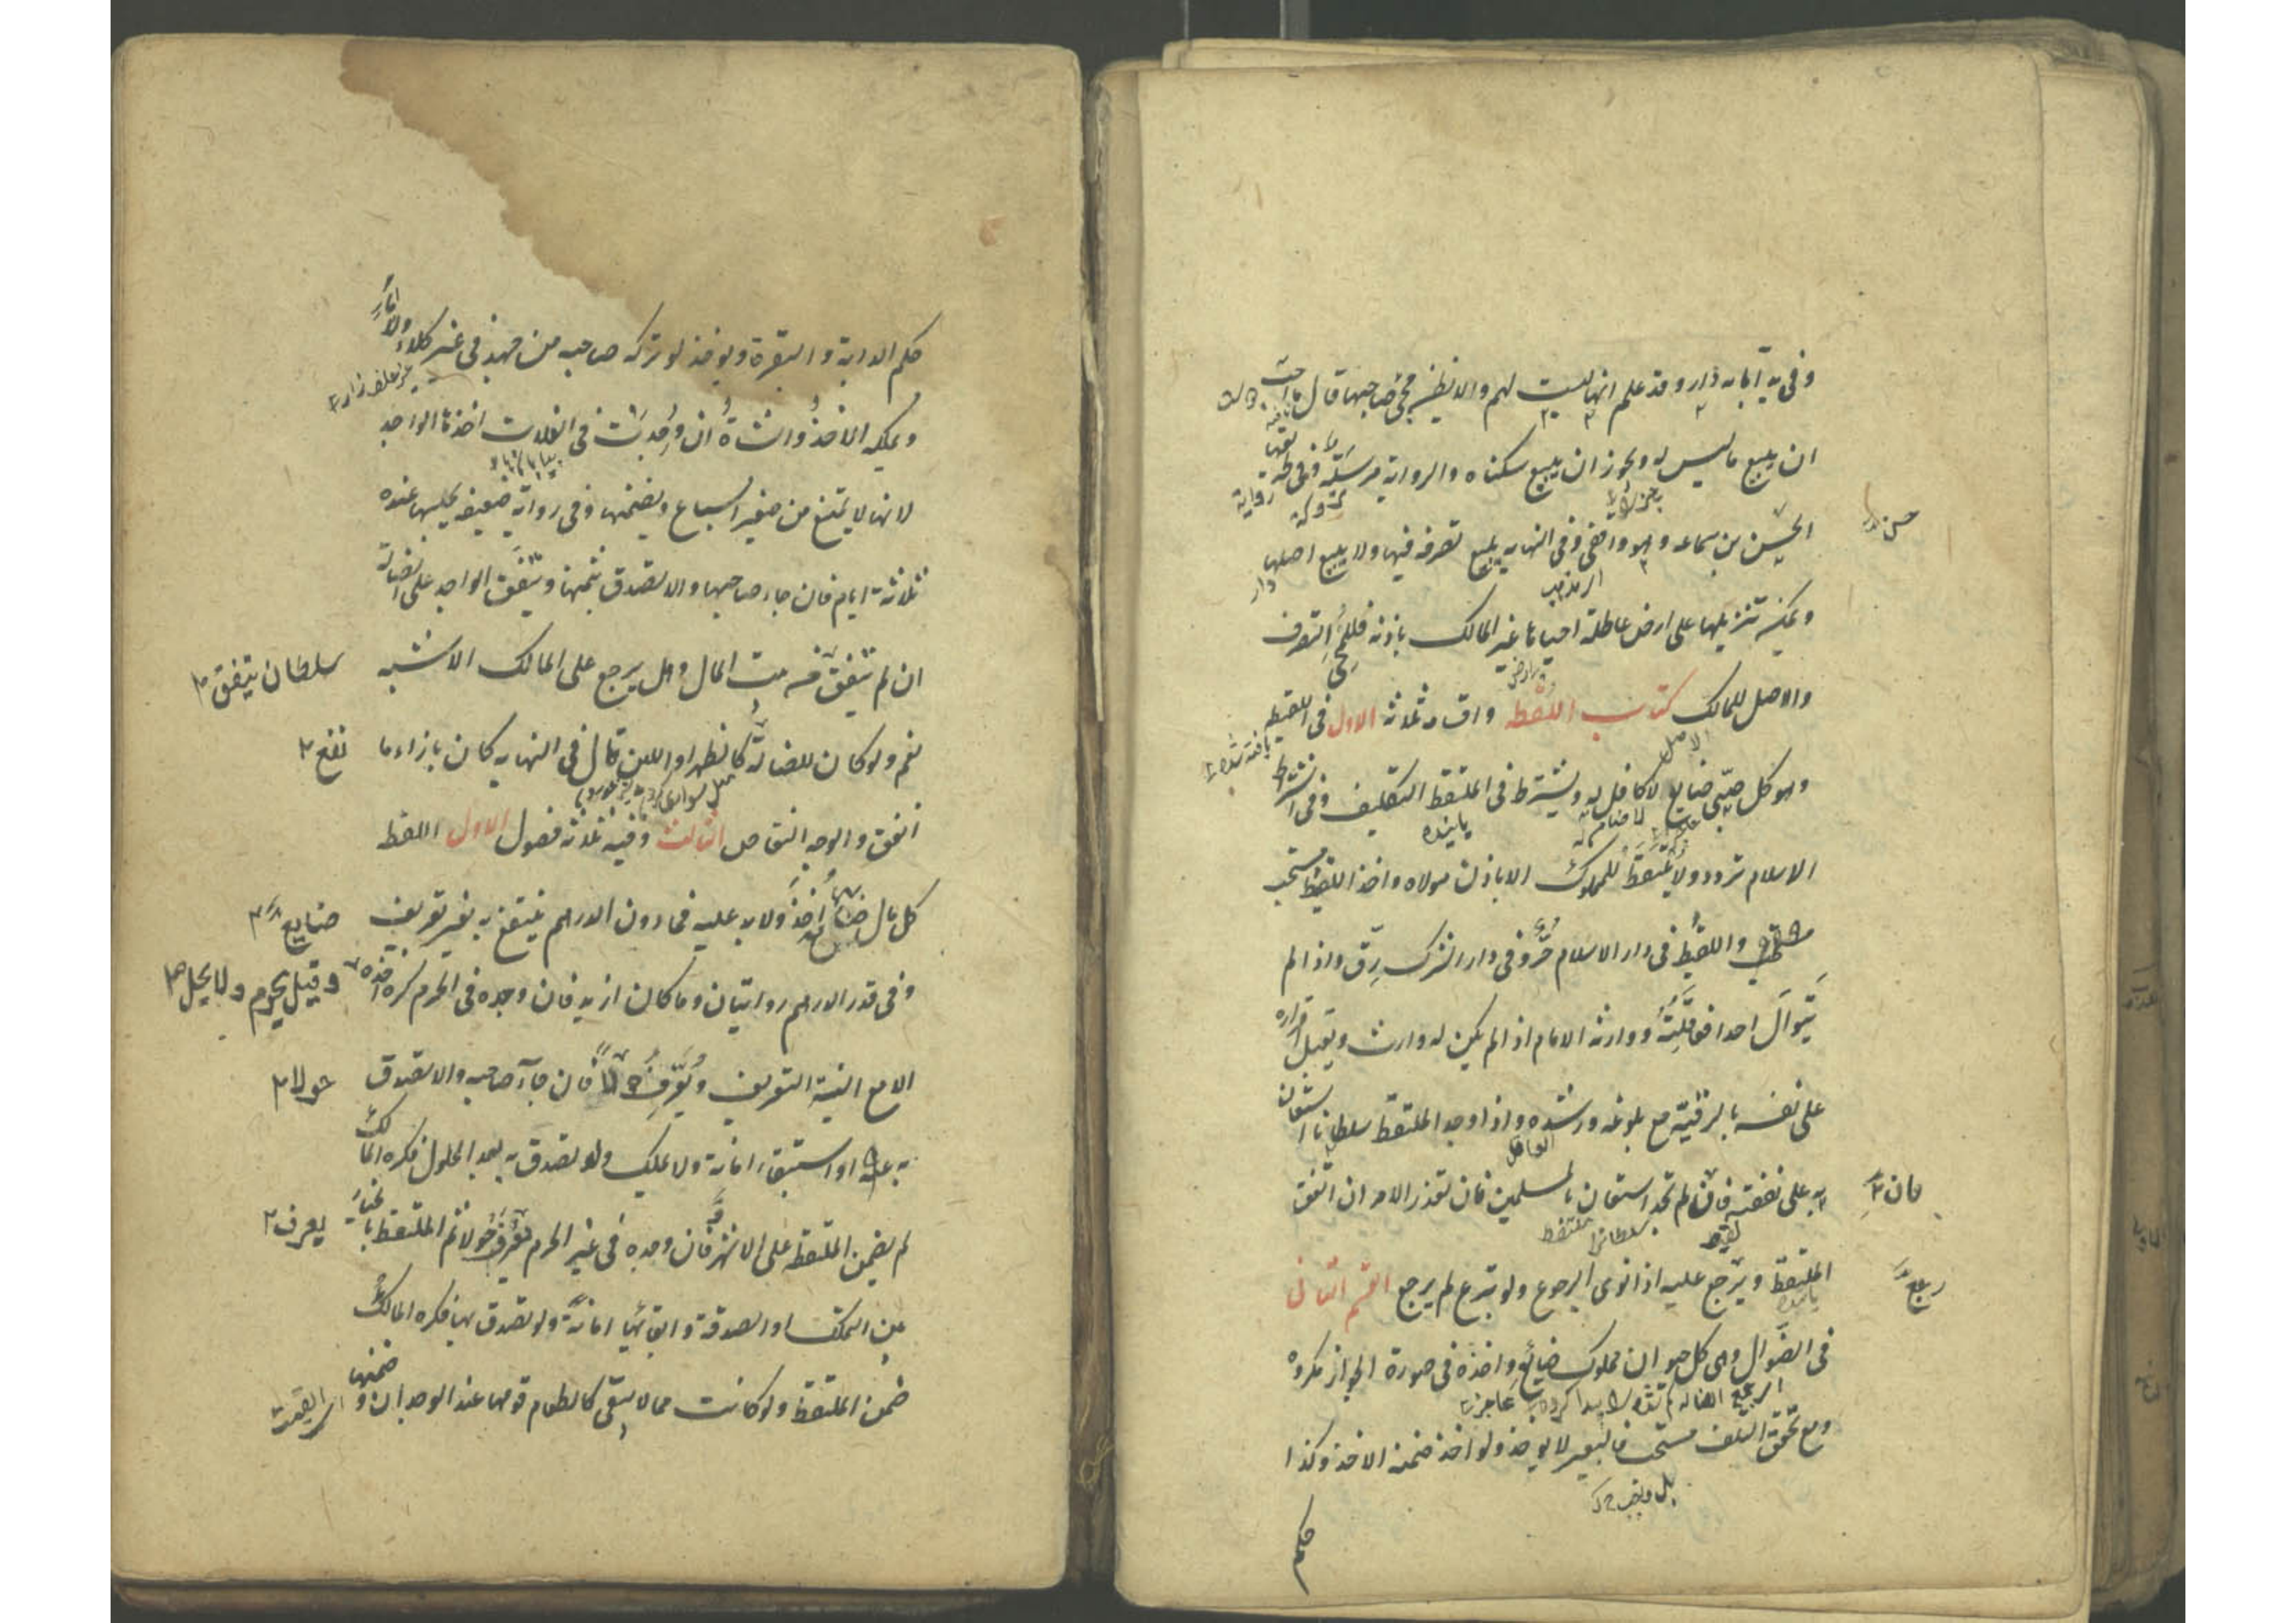 وفى يد آبائه دار وقد علم انها ليست لهم ولا يظن مجئ صاحبها قال ما احب
ان يبيع ما ليس له ويجوز ان يبيع سكناه والرواية مرسلة وفى طريقها
الحسن بن سماعه وهو واقفى وفى النهايه يبيع تصرفه فيها ولا يبيع اصلها
حسن
ويمكن تنزيلها على ارض عاطلة احياها غير المالك باذنه فللمحيى التصرف
والاصل للمالك كتاب اللقطه واقسامه ثلاثه الاول فى اللقيط
وهو كل صبى ضايع لا كافل له ويشترط فى الملتقط التكليف وفى اشتراط
الاسلام تردد ولا يلتقط المملوك الا باذن مولاه واخذ اللقيط مستحب
واللقيط فى دار الاسلام حر وفى دار الشرك رق واذا لم
يتوال احدا فعاقلته ووارثه الامام اذا لم يكن له وارث ويقبل اقراره
على نفسه بالرقية مع بلوغه ورشده واذا وجد الملتقط سلطانا استعان
به على نفقته فان لم يجد استعان بالمسلمين فان تعذر الامر انفق
فان
الملتقط ويرجع عليه اذا نوى الرجوع ولو تبرع لم يرجع القسم الثانى
رجع
فى الضوال وهى كل حيوان مملوك ضائع واخذه فى صورة الجواز مكروه
ومع تحقق التلف مستحب فالبعير لا يوخذ ولو اخذ ضمنه الاخذ وكذا
حكم
حكم الدابة والبقرة ويوخذ لو تركه صاحبه من جهد فى غير كلاء ولا ماء
غير علف زار
ويملكه الاخذ والشاة ان وجدت فى الفلات اخذها الواجد
لانها لا تمتنع من صغير السباع ويضمنها وفى رواية ضعيفه يحبسها عنده
ثلاثة ايام فان جاء صاحبها والا تصدق بثمنها وينفق الواجد على الضالة
ان لم يتفق بيت المال وهل يرجع على المالك الاشبه
سلطان يتفق
نعم ولو كان للضالة نفع كالظهر او اللبن قال فى النهايه كان بازاء ما
نفع
انفق والوجه التقاص الثالث وفيه ثلاثه فصول الاول اللقطه
كل مال ضايع اخذ ولا يد عليه فما دون الدرهم ينتفع به بغير تعريف
ضايع
وفى قدر الدرهم روايتان وما كان ازيد فان وجده فى الحرم كره اخذه
وقيل يحرم ولا يحل
الا مع النية التعريف ويعرف حولا فان جاء صاحبه والا تصدق
حولا
به عنه او استبقاه امانة ولا يملك ولو تصدق به بعد الحلول فكره المالك
لم يضمن الملتقط على الاشهر وان وجده فى غير الحرم يعرف حولا ثم الملتقط بالخيار
يعرف
بين التملك او الصدقة وابقائها امانة ولو تصدق بها فكره المالك
ضمن الملتقط ولو كانت مما لا يبقى كالطعام قومها عند الوجدان وضمنها
القيمت